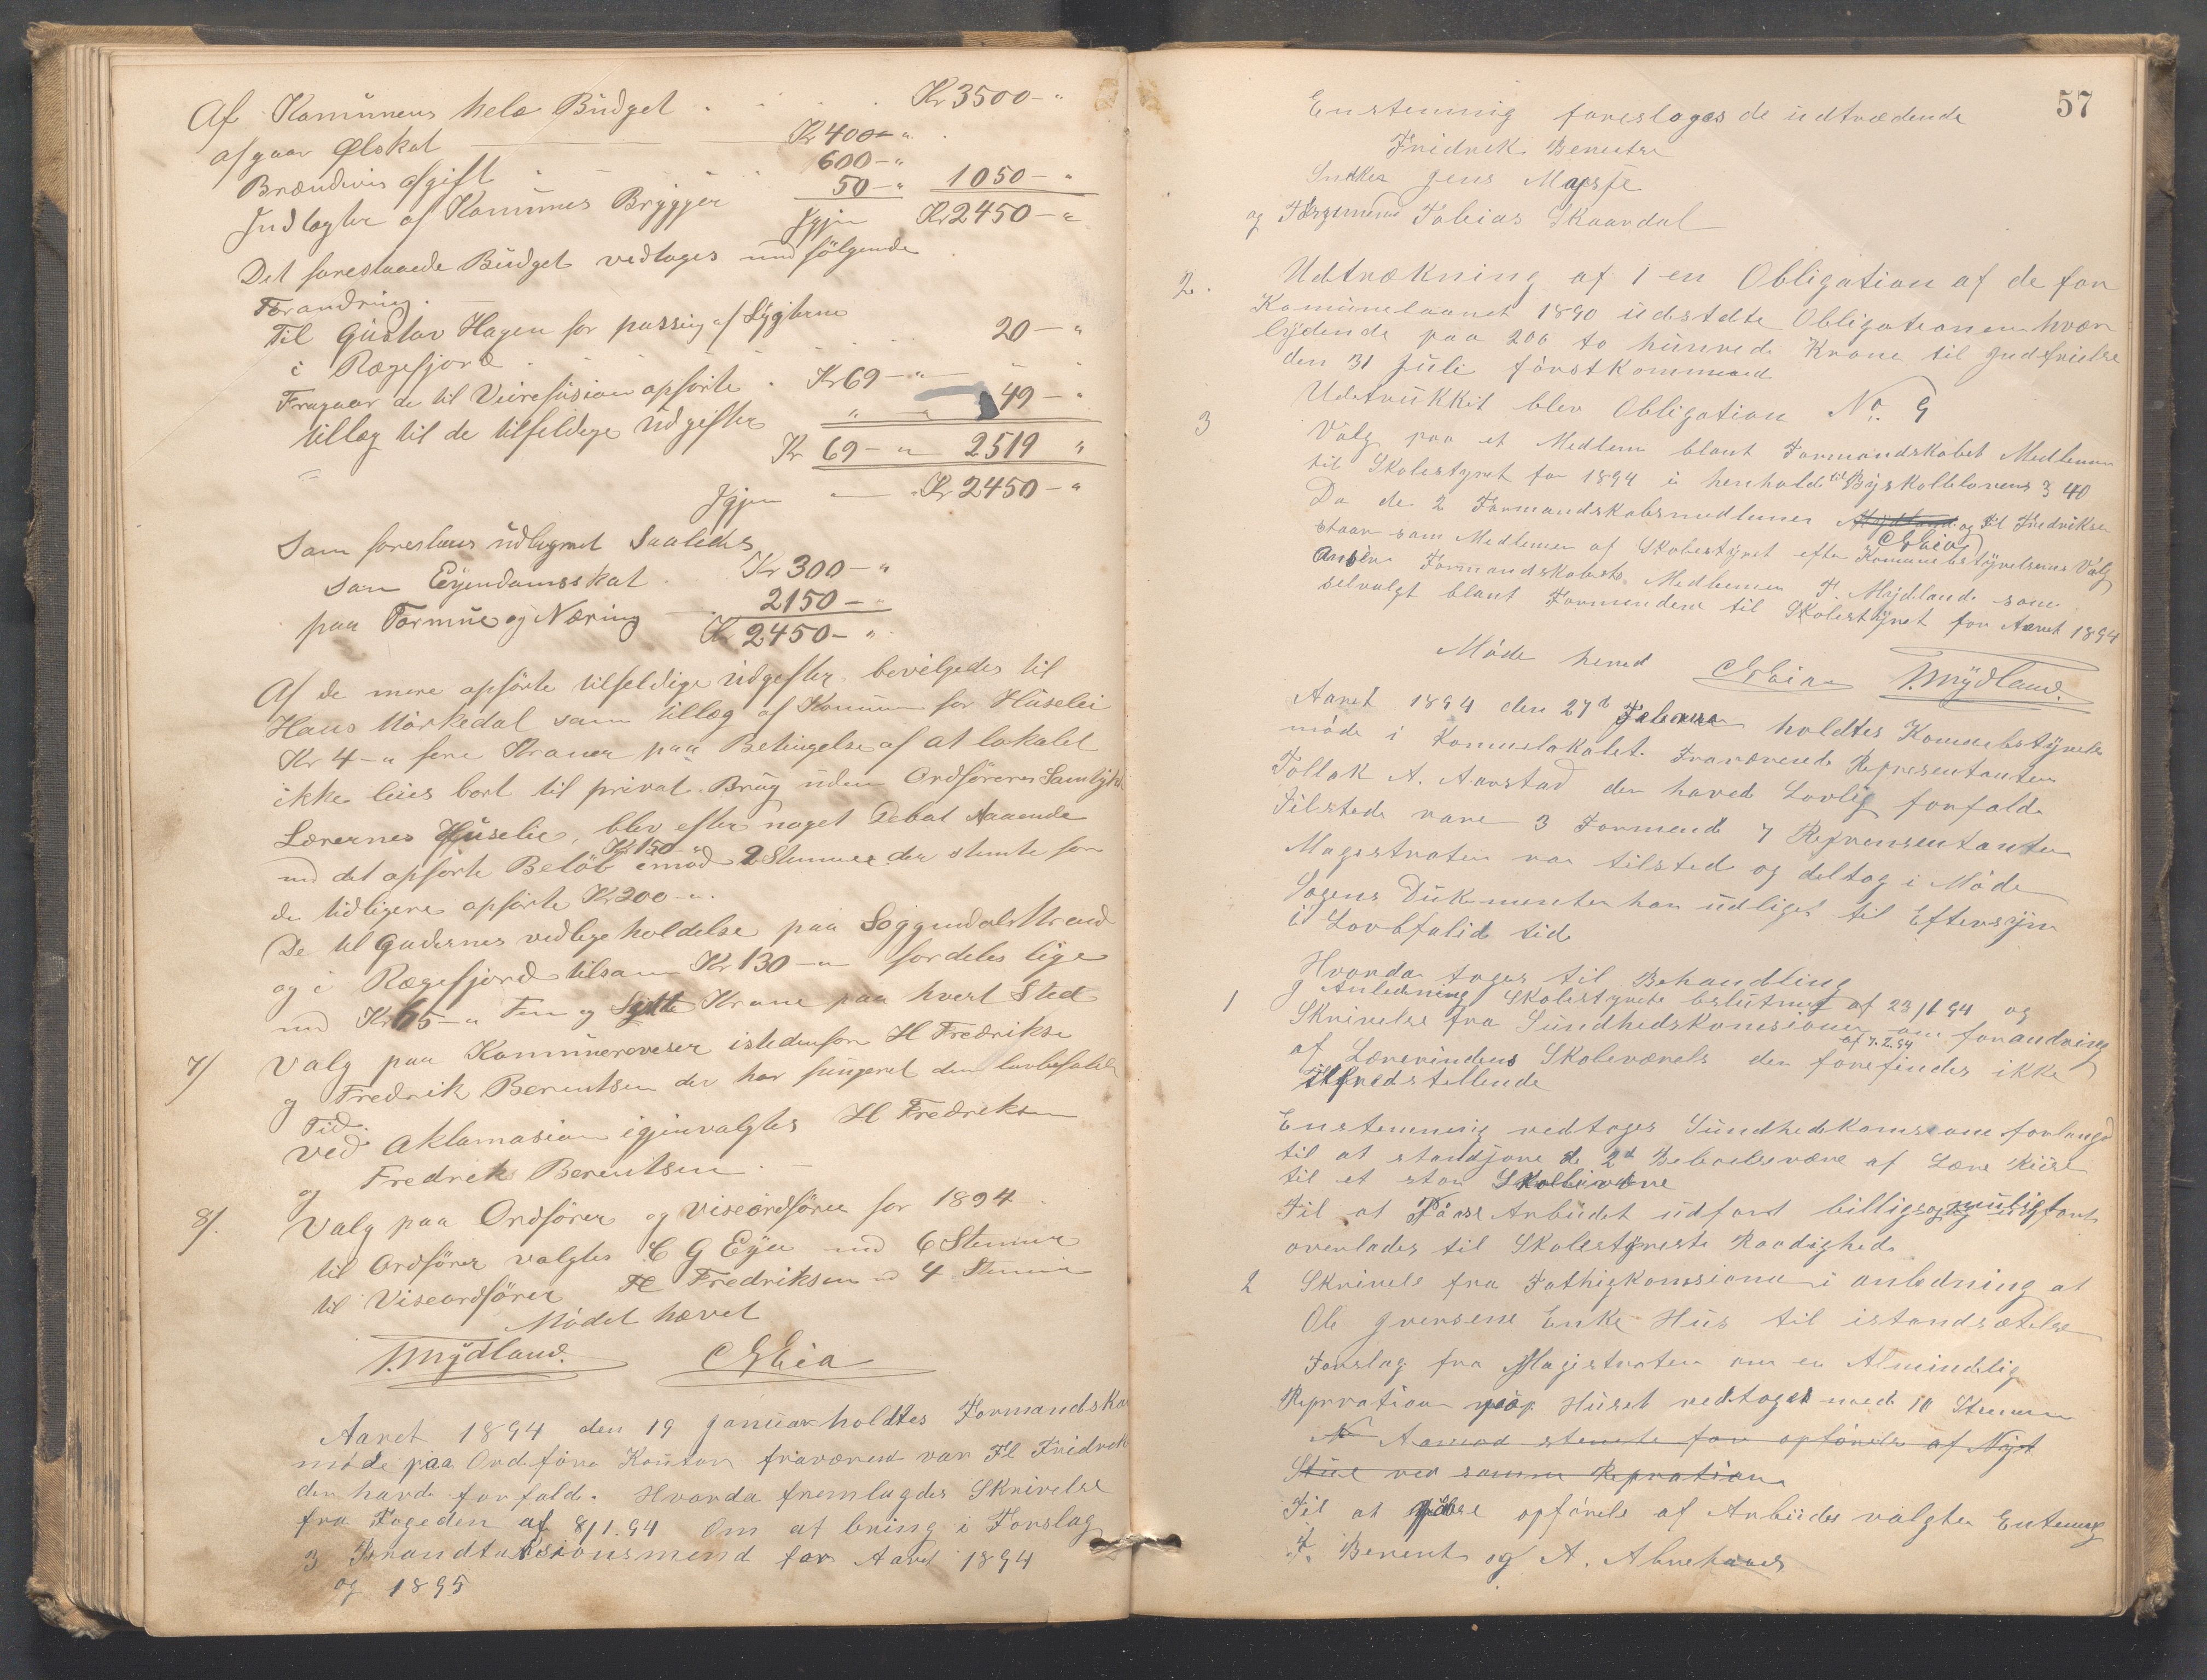 Af Komunens hele Büdget . . . Kr 3500-"
afgaar Ølskat Kr 400-"
Brændevis afgift 600-"
Indtægter af Komunes Brygger 50-" 1050-"
Igjen Kr 2450-"
Det forestaaede Büdget vedtages med følgende
Forandring.
Til Güstav Hagen for passing af Lygterne
i Rægefjord 20-"
Fragaar de til Veirefusion opførte . Kr 69-"
tillæg til de tilfeldige üdgifter " " 49-"
Kr 69-" 2519 "
Igjen Kr 2450-"
Som foreslaaes üdlignet Saaledes
som Eyendomsskat Kr 300-"
paa Formüe og Næring 2150-"
Kr 2450-"
Af de mere opførte tilfeldige üdgifter bevilgedes til
Hans Mørkedal som tillæg af Komun for Hüseleie
Kr 4-" fire Kroner paa Betingelse af at lokalet
ikke leies bort til privat Brüg üden Ordførerens Samtykke
Lærernes Hüseleie, blev efter noget Debat staaende
med det opførte Beløb Kr 150 imod 2 Stemmer der stemte for
de tidligere opførte Kr 200-".
De til Gadernes vedligeholdelse paa Soggendals Strand
og i Rægefjord tilsam Kr 130-" fordeles lige
med Kr 65-" Fem og Sytti Krone paa hvert Sted
7/ Valg paa Komünerevisor istedenfor H Fredrikse
og Fredrik Berentsen der har füngeret den lovbefalede
Tid.
Ved Aklamasion igjenvalgtes H Fredriksen
og Fredrek Berentsen
8/. Valg paa Ordfører og Viseordfører for 1894
til Ordfører valgtes C G Eyea med 6 Stemmer
til Viseordfører H Fredriksen med 4 Stemmer
Mødet hævet
T. Mydland. C G Eia
Aaret 1894 den 19 Januar holdtes Formandskabs
møde paa Ordføre Kontor fraværend var H Fridrek
der havde forfald. Hvorda fremlagdes Skrivelse
fra Fogeden af 8/1.94 Om at bring i Forslag
3 Brandtaksionsmend for Aaret 1894
og 1895
57
Enstemmig foresloges de üdtrædende
Fridrek Berentse
Snekker Jens
og Tobias Skaardal
2. Udtrækning af 1 en Obligation af de for
Komünelaanet 1890 üdstedte Obligationer hver
lydende paa 200 to hünrede Krone til Indfrielse
den 31 Jüli førstkommend
Udtrükkit blev Obligation No. 9
3 Valg paa et Medlem blant Formandskabet Medlemer
til Skolestyret for 1894 i henhold til Byskollelovens § 40
Da de 2 Formandskabsmedlemer Mydland C G Eia og H Fredriksen
staar som Medlemer af Skolestyret efter Komunebestyrelsens Valg
Formandskabets Medlemer T. Mydland som
selvalgt blant Formendene til Skolestyret for Aaret 1894
Møde heved C G Eia T. Mydland.
Aaret 1894 den 27d Februar holdtes Komunebstyrels
møde i Komunelokalet. Fraværende Representanten
Tollak A. Aarstad der haved Lovlig forfald.
Tilstede vare 3 Formend 7 Reprensentanter
Magestraten var tilsted og deltog i Møde
Sagens Dükumenter har üdliget til Eftersyn
i Lovbfalid tid
Hvorda toges til Behandling
1 I Anledning Skolestyrets beslütning af 23/1 94 og
Skrivelse fra Sündhedskomsionen af 7.2.94 om forandring
af Lærerindens Skoleværels der forefindes ikke
tilfredstellende
Enstemmig vedtoges Sündhedskomsions forlangd
til at standjøre de 2d Beboelsevære af Lære Hüse
til et stor Skolleværlse
Til at Arbüdet üdført billigs og müligt üdført
overlades til Skolestyrets Raadighed.
2 Skrivels fra Fathigkomsionen i anledning at
Ole Iversens Enke Hüs til istandsættelse
Forslag fra Magistraten om en Almindelig
Repration paa Hüset vedtoges med 10 Stemmer
Aamod stemte for opførels af Nyt
Stue ved samme Repration
Til at opførels af Arbüdes valgtes Enstemig
F. Berents og A.